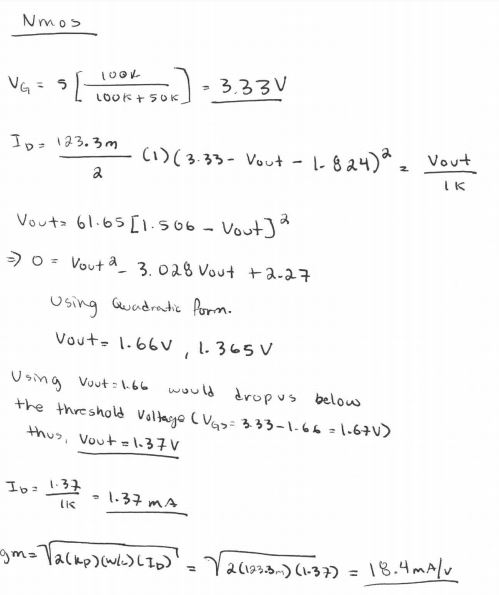 Nmos
V_G = 5 [ 100K / (100K + 50K) ] = 3.33V
I_D = 123.3m / 2 (1)(3.33 - Vout - 1.824)^2 = Vout / 1K
Vout = 61.65 [1.506 - Vout]^2
⇒ 0 = Vout^2 - 3.028 Vout + 2.27
Using Quadratic Form.
Vout = 1.66V , 1.365 V
Using Vout = 1.66 would drop us below
the threshold Voltage (V_GS = 3.33 - 1.66 = 1.67V)
thus, Vout = 1.37V
I_D = 1.37 / 1K = 1.37 mA
gm = √(2(Kp)(W/L)(I_D)) = √(2(123.3m)(1.37)) = 18.4mA/V